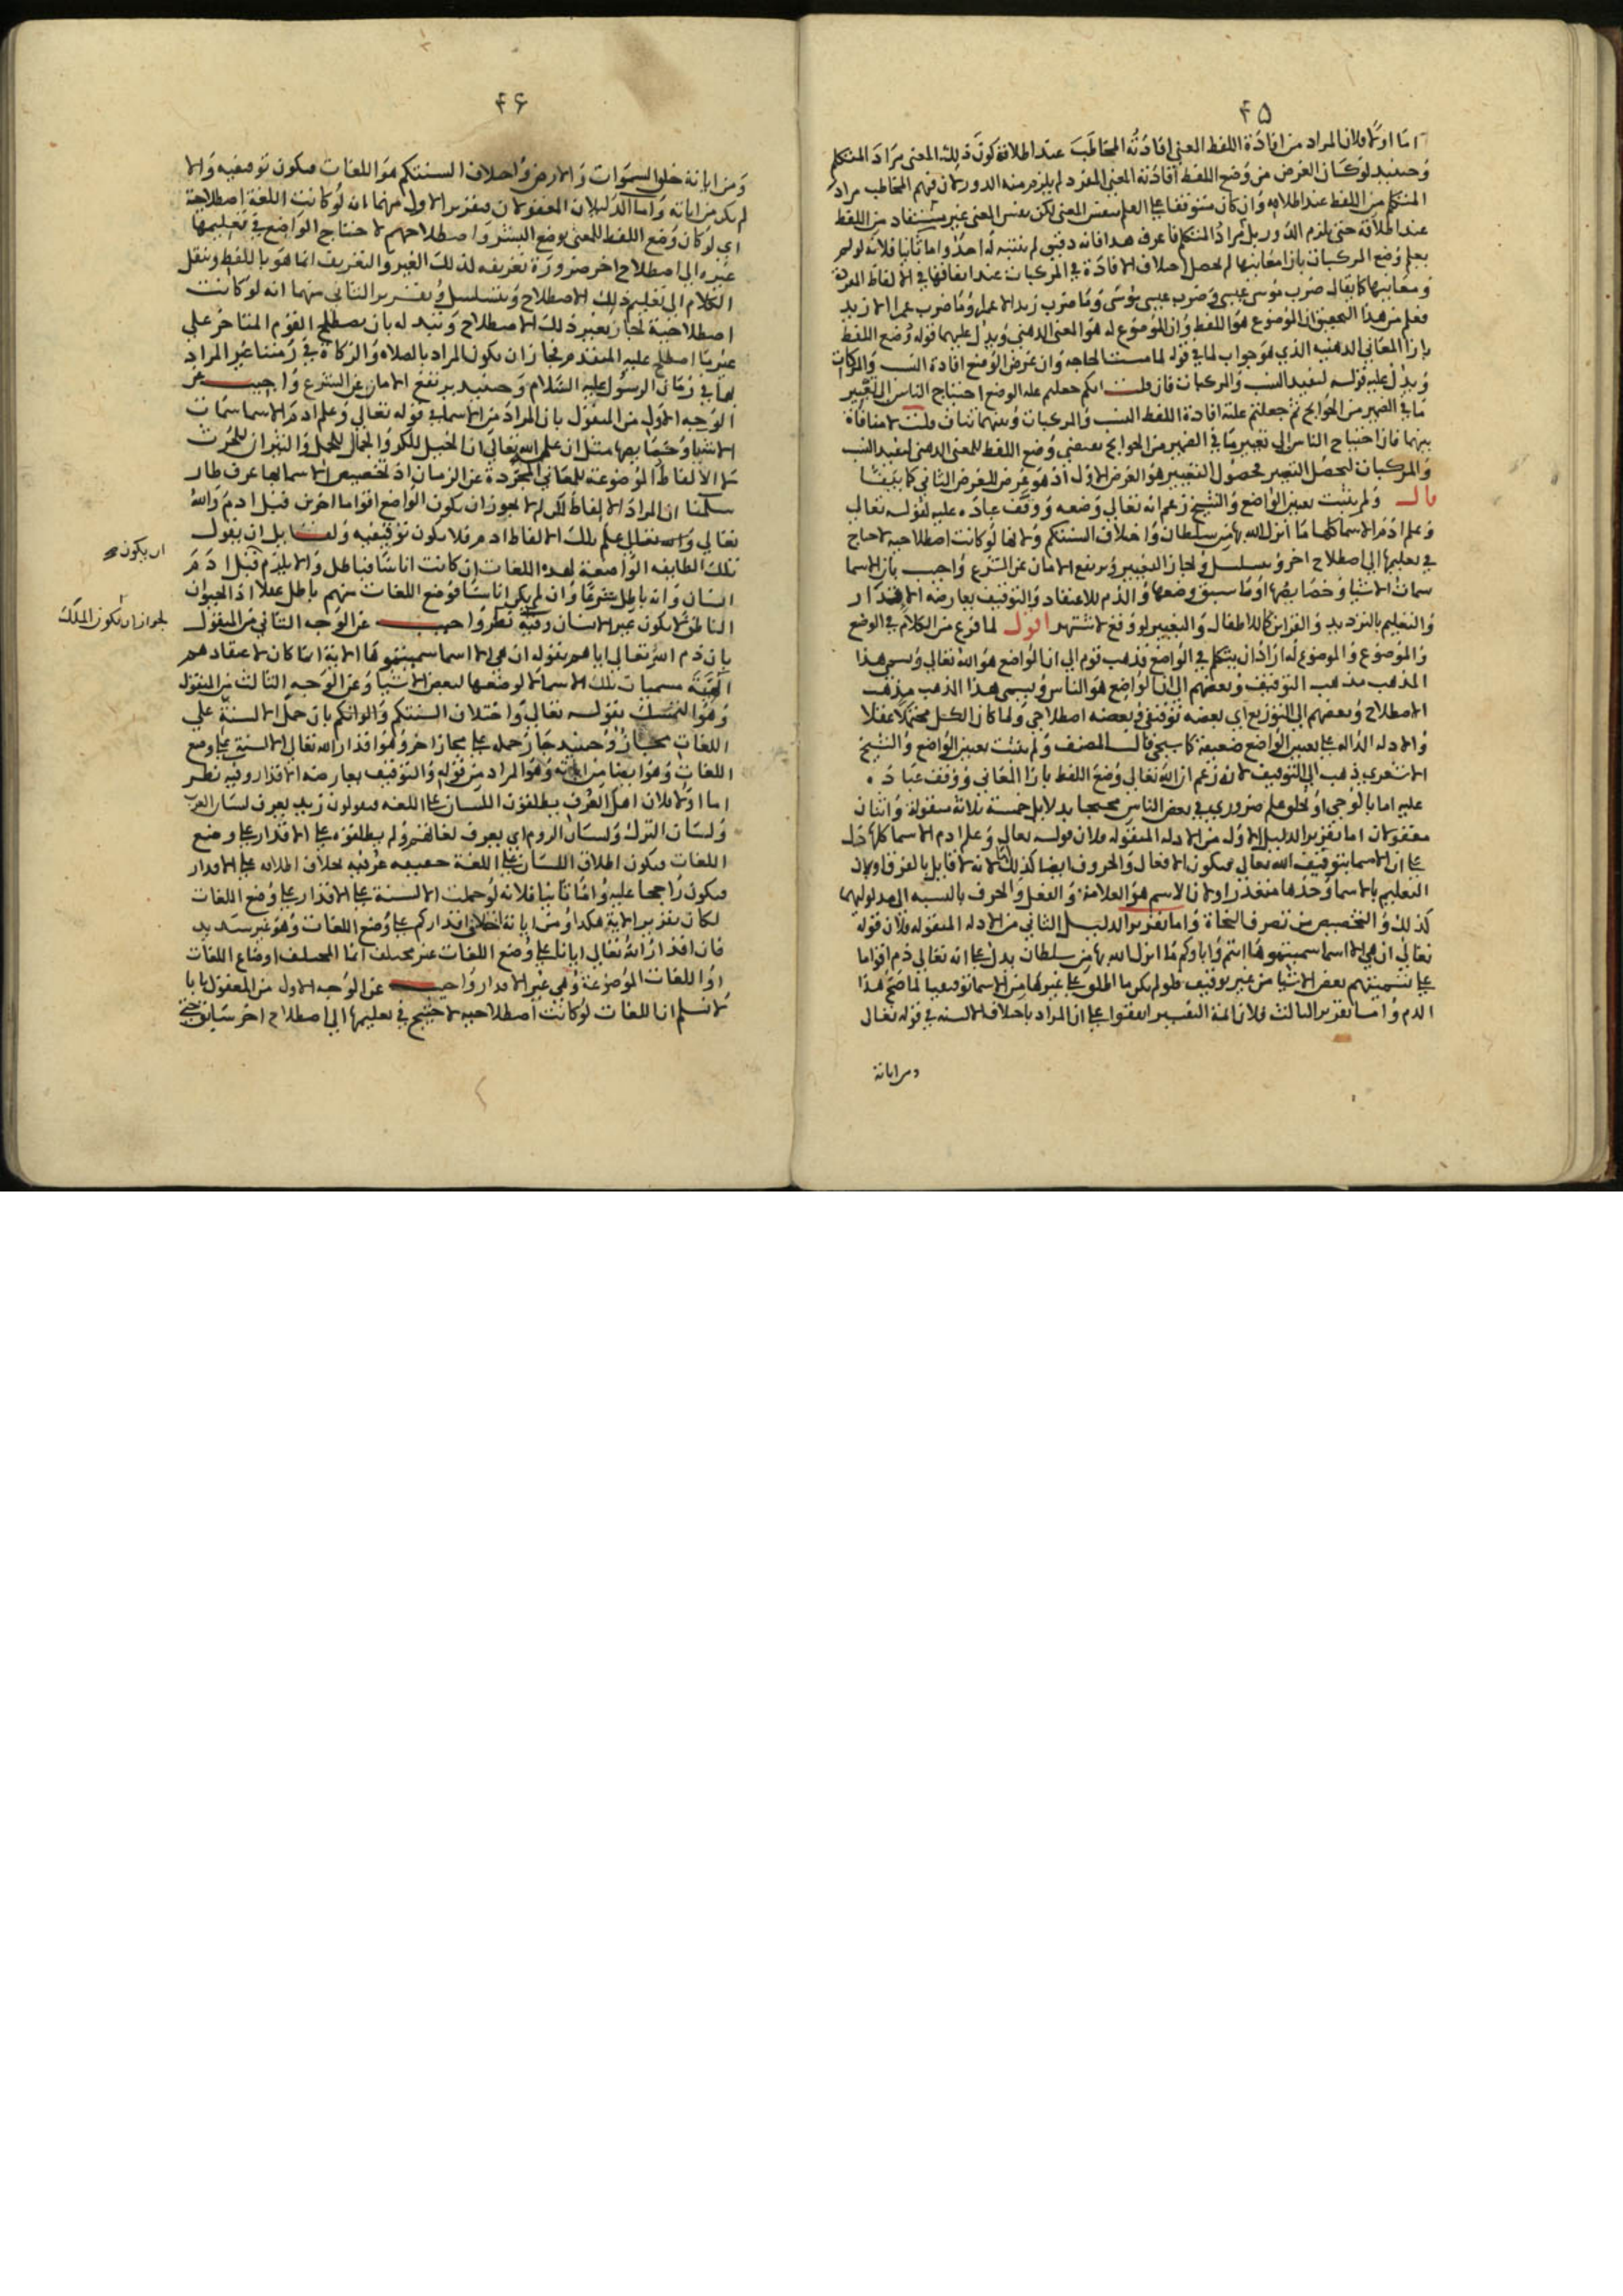 ۴۵
اما اولا فلان المراد من افادة اللفظ المعنى افادته المخاطب عند اطلاقه كون ذلك المعنى مراد المتكلم
وحينيد لو كان الغرض من وضع اللفظ افادته المعنى المفرد لم يلزم منه الدور لان فهم المخاطب مراد
المتكلم من اللفظ عند اطلاقه وان كان متوقفا على العلم بنفس المعنى لكن نفس المعنى غير مستفاد من اللفظ
عند اطلاقه حتى يلزم الدور بل مراد المتكلم فاعرف هذا فانه دقيق لم يتنبه له احد واما ثانيا فلانه لو لم
يعلم وضع المركبات بازا معانيها لم يحصل اختلاف الافادة في المركبات عند اتفاقها في الالفاظ المفردة
ومعانيها كما يقال ضرب موسى عيسى وضرب عيسى موسى وما ضرب زيد الا عمرا وما ضرب عمرا الا زيد
فعلم من هذا التحقيق ان الموضوع هو اللفظ وان الموضوع له هو المعنى الذهني ويدل عليهما قوله وضع اللفظ
بازا المعاني الذهنيه الذي هو جواب لما في قوله لما مست الحاجه وان غرض الوضع افادة النسب والمركبات
ويدل عليه قوله ليفيد النسب والمركبات فان قلت انكم جعلتم علة الوضع احتياج الناس الى تعبير
ما في الضمير من الحوايج ثم جعلتم علته افادة اللفظ النسب والمركبات وبينهما تناف قلت لا منافاة
بينهما فان احتياج الناس الى تعبير ما في الضمير من الحوايج يقتضي وضع اللفظ للمعنى الذهني ليفيد النسب
والمركبات ليحصل التعبير فحصول التعبير هو الغرض الاول اذ هو غرض للغرض الثاني كما بينا
قال ولم يثبت تعيين الواضع والشيخ زعم انه تعالى وضعه ووقف عباده عليه لقوله تعالى
وعلم ادم الاسما كلها ما انزل الله بها من سلطان واختلاف السنتكم ولانها لو كانت اصطلاحيه لاحتاج
في تعليمها الى اصطلاح اخر وتسلسل ولجاز التغيير ويرتفع الامان عن الشرع واجيب بان الاسما
سمات الاشيا وخصايصها او ما سبق وضعها والذم للاعتقاد والتوقيف يعارضه الاقدار
والتعليم بالترديد والقراين كما للاطفال والتغيير لو وقع لاشتهر اقول لما فرغ من الكلام في الوضع
والموضوع والموضوع له اراد ان يتكلم في الواضع فذهب قوم الى ان الواضع هو الله تعالى ويسمى هذا
المذهب مذهب التوقيف وبعضهم الى ان الواضع هو الناس ويسمى هذا المذهب مذهب
الاصطلاح وبعضهم الى التوزيع اي بعضه توقيفي وبعضه اصطلاحي ولما كان الكل محتملا عقلا
والادله الداله على تعيين الواضع ضعيفة كما سيجي قال المصنف ولم يثبت تعيين الواضع والشيخ
الاشعري ذهب الى التوقيف لانه زعم ان الله تعالى وضع اللفظ بازا المعاني ووقف عباده
عليه اما بالوحي او بخلو علم ضروري في بعض الناس محتجا بدلايل خمسة ثلاثة منقولة واثنان
معقولان اما تقرير الدليل الاول من الادله المنقوله فلان قوله تعالى وعلم ادم الاسما كلها دل
على ان الاسما بتوقيف الله تعالى فيكون الافعال والحروف ايضا كذلك لانه لا قايل بالفرق ولان
التعليم بالاسما وحدها متعذر او لان الاسم هو العلامة والفعل والحرف بالنسبه الى مدلوليهما
كذلك والتخصيص من تصرف النحاة واما تقرير الدليل الثاني من الادله المنقوله فلان قوله
تعالى ان هي الا اسما سميتموها انتم واباوكم ما انزل الله بها من سلطان يدل على انه تعالى ذم اقواما
على تسميتهم بعض الاشيا من غير توقيف فلو لم يكن ما اطلق على غيرها من الاسما توقيفيا لما صح هذا
الذم واما تقرير الثالث فلان ايمة التفسير اتفقوا على ان المراد باختلاف الالسنه في قوله تعالى
ومن اياته
۴۶
ومن اياته خلق السموات والارض واختلاف السنتكم هو اللغات فيكون توقيفيه والا
لم يكن من اياته واما الدليلان المعقولان فتقرير الاول منهما انه لو كانت اللغة اصطلاحية
اي لو كان وضع اللفظ للمعنى بوضع البشر واصطلاحهم لاحتاج الواضع في تعليمها
غيره الى اصطلاح اخر ضرورة تعريفه لذلك الغير والتعريف انما هو باللفظ وينقل
الكلام الى تعليم ذلك الاصطلاح ويتسلسل وتقرير الثاني منهما انه لو كانت
اصطلاحية لجاز تغيير ذلك الاصطلاح وتبدله بان يصطلح القوم المتاخر على
غير ما اصطلح عليه المتقدم فجاز ان يكون المراد بالصلاه والزكاة في زمننا غير المراد
بها في زمان الرسول عليه السلام وحينيد يرتفع الامان عن الشرع واجيب عن
الوجه الاول من المنقول بان المراد من الاسما في قوله تعالى وعلم ادم الاسما سمات
الاشيا وخصايصها مثل ان علم الله تعالى ان الخيل للكر والجمال للحمل والثيران للحرث
لا الالفاظ الموضوعة للمعاني المجردة عن الزمان اذ تخصيص الاسما بها عرف طار
سلمنا ان المراد الالفاظ لكن لم لا يجوز ان يكون الواضع اقواما اخرين قبل ادم والله
تعالى علم تلك الالفاظ ادم فلا يكون توقيفيه ولقايل ان يقول
تلك الطايفه الواضعة لهذه اللغات ان كانت اناسا فباطل والا يلزم قبل ادم
انسان وانه باطل شرعا وان لم يكن اناسا فوضع اللغات منهم باطل عقلا اذ الحيوان
الناطق لا يكون غير الانسان وفيه نظر واجيب عن الوجه الثاني من المنقول
بان ذم الله تعالى اياهم بقوله ان هي الا اسما سميتموها الاية انما كان لاعتقادهم
الهية مسميات تلك الاسما لا لوضعها لبعض الاشيا وعن الوجه الثالث من المنقوله
وهو التمسك بقوله تعالى واختلاف السنتكم والوانكم بان حمل الالسنة على
اللغات مجاز وحينيد جاز حمله على مجاز اخر وهو اقدار الله تعالى الالسنة على وضع
اللغات وهو ايضا من اياته وهو المراد من قوله والتوقيف يعارضه الاقدار وفيه نظر
اما اولا فلان اهل العرف يطلقون اللسان على اللغه فيقولون زيد يعرف لسان العرب
ولسان الترك ولسان الروم اي يعرف لغاتهم ولم يطلقوه على الاقدار على وضع
اللغات فيكون اطلاق اللسان على اللغة حقيقه عرفيه بخلاف اطلاقه على الاقدار
فيكون راجحا عليه واما ثانيا فلانه لو حملت الالسنة على الاقدار على وضع اللغات
لكان تقرير الاية هكذا ومن اياته اختلاف اقداركم على وضع اللغات وهو غير سديد
فان اقدار الله تعالى ايانا على وضع اللغات غير مختلف انما المختلف اوضاع اللغات
او اللغات الموضوعة وهي غير الاقدار واجيب عن الوجه الاول من المعقول بانا
لا نسلم ان اللغات لو كانت اصطلاحيه لاحتيج في تعليمها الى اصطلاح اخر سابق حتى
ان يكون
لجواز ان يكون الملك